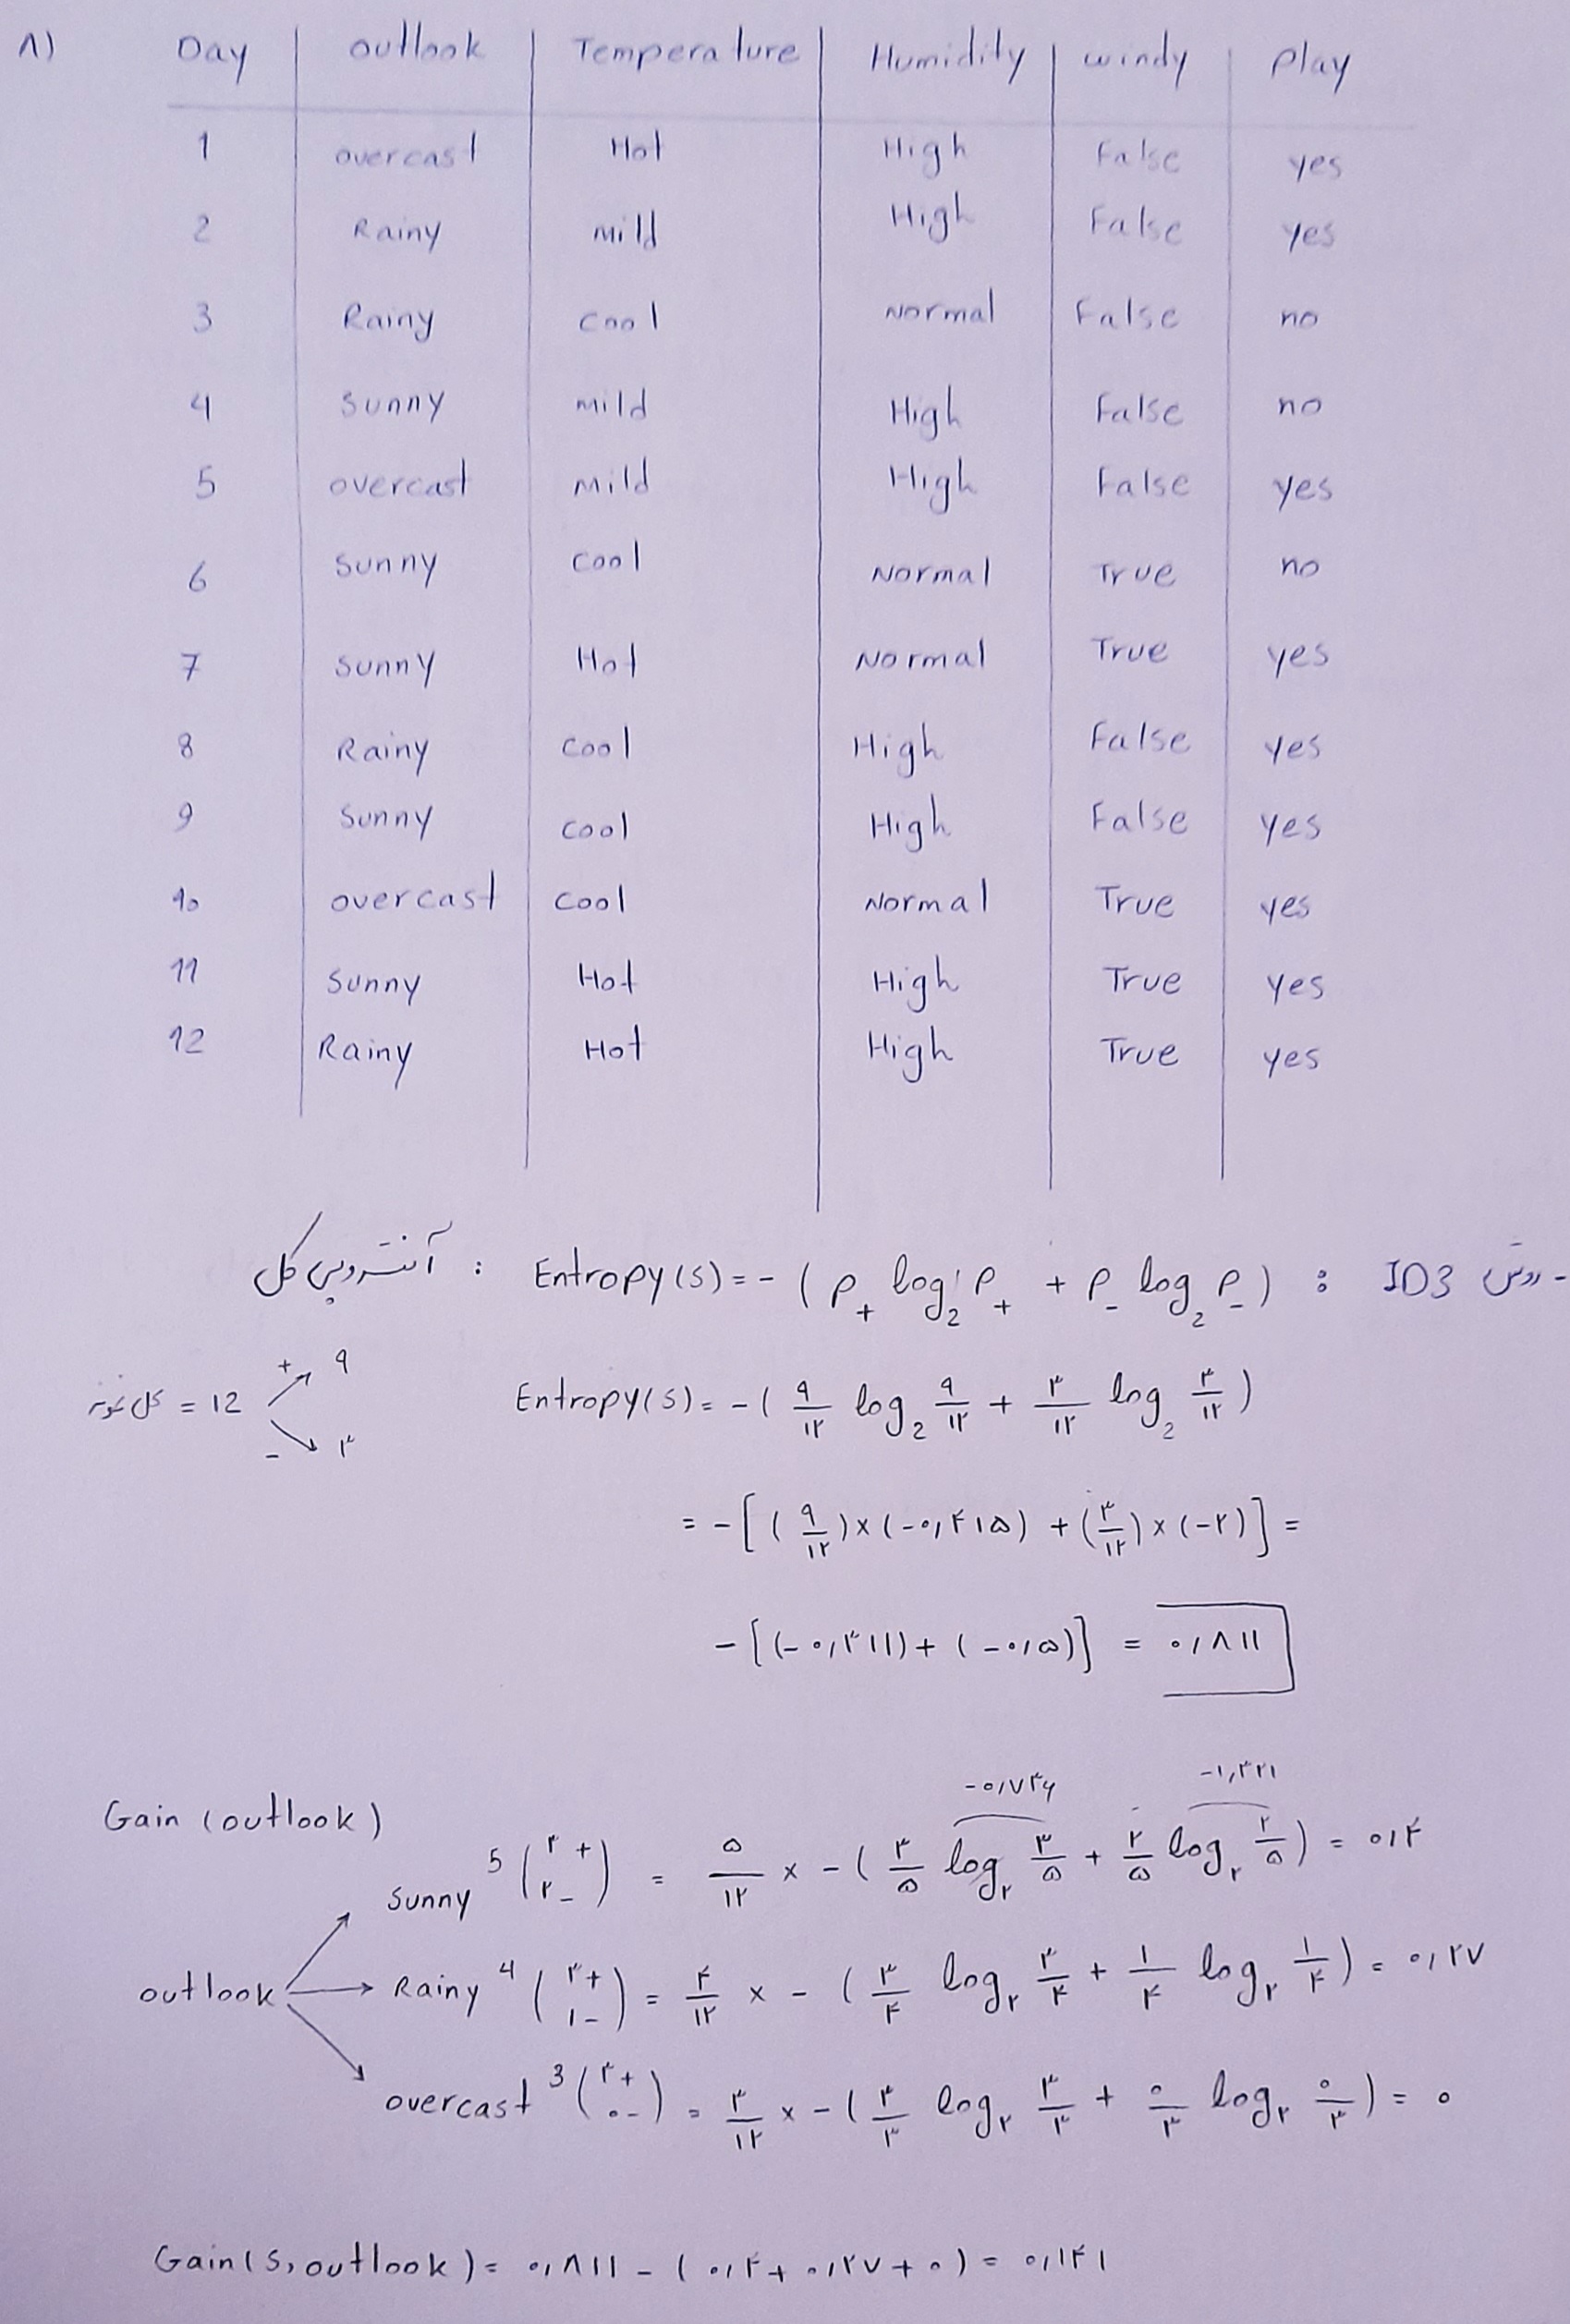 ۸) Day outlook Temperature Humidity windy Play
1 overcast Hot High False yes
2 Rainy mild High False yes
3 Rainy cool Normal False no
4 sunny mild High False no
5 overcast mild High False yes
6 sunny cool Normal True no
7 sunny Hot Normal True yes
8 Rainy cool High False yes
9 sunny cool High False yes
10 overcast cool Normal True yes
11 sunny Hot High True yes
12 Rainy Hot High True yes
- روش ID3 : Entropy(S) = - (P₊ log₂ P₊ + P₋ log₂ P₋) : آنتروپی کل
کل نمونه = 12 + ۹ - ۳ Entropy(S) = - (۹/۱۲ log₂ ۹/۱۲ + ۳/۱۲ log₂ ۳/۱۲)
= - [(۹/۱۲) × (-۰,۴۱۵) + (۳/۱۲) × (-۲)] =
- [(-۰,۳۱۱) + (-۰,۵)] = ۰,۸۱۱
-۰,۷۳۶ -۱,۳۲۱
Gain (outlook)
sunny 5 (۳+ ۲-) = ۵/۱۲ × - (۳/۵ log₂ ۳/۵ + ۲/۵ log₂ ۲/۵) = ۰,۴
outlook Rainy 4 (۳+ ۱-) = ۴/۱۲ × - (۳/۴ log₂ ۳/۴ + ۱/۴ log₂ ۱/۴) = ۰,۲۷
overcast 3 (۳+ ۰-) = ۳/۱۲ × - (۳/۳ log₂ ۳/۳ + ۰/۳ log₂ ۰/۳) = ۰
Gain(S, outlook) = ۰,۸۱۱ - (۰,۴ + ۰,۲۷ + ۰) = ۰,۱۴۱